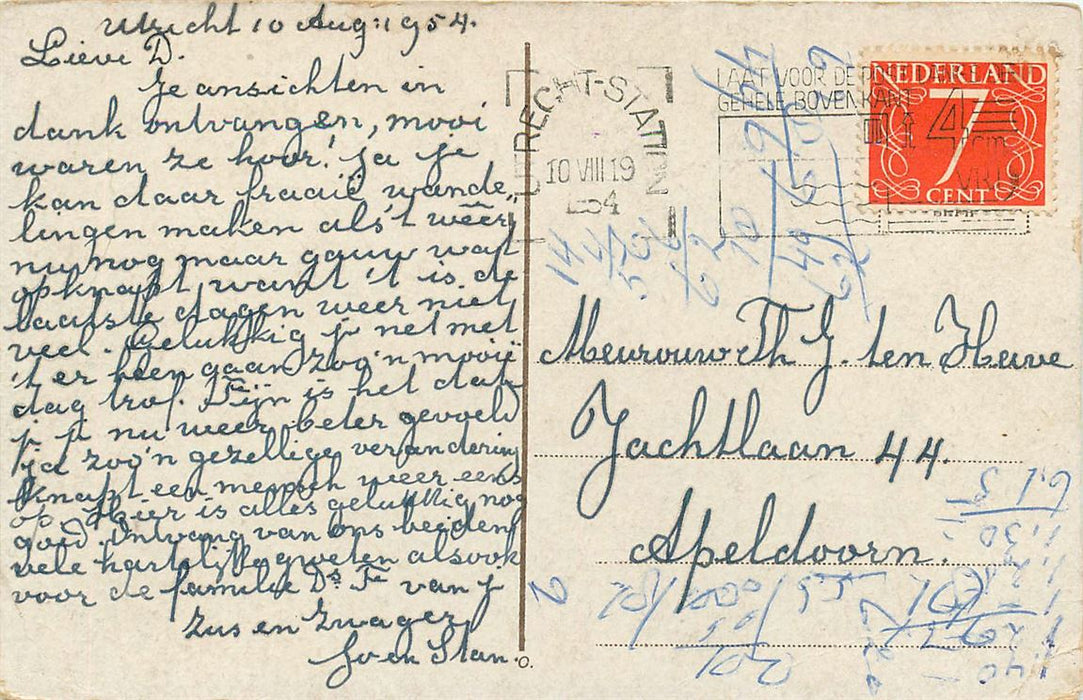 Utrecht 10 Aug: 1954.
Lieve D.
Je ansichten in
dank ontvangen, mooi
waren ze hoor! ja je
kan daar fraaië wande„
lingen maken als 't wêêr
nu nog maar gauw wat
opknapt, want 't is de
laatste dagen weer niet
veel. Gelukkig je net met
't er heen gaan zoo'n mooië
dag trof. Fijn is het dat
je je nu weer beter gevoeld
ja zoo'n gezellige verandering
knapt een mensch weer eens
op. Hier is alles gelukkig nog
goed. Ontvang van ons beiden
vele hartelijke groeten alsook
voor de familie Ds. F. van je
Zus en Zwager
Jo en Stan.
UTRECHT-STATION
10 VIII 19
1954
LAAT VOOR DE
GEHELE BOVENKANT
4
cm
VRIJ
NEDERLAND
7
CENT
Mevrouw Th G. ten Heuve
Jachtlaan 44.
Apeldoorn.
O.